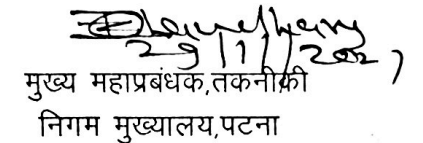 29/1/2021
मुख्य महाप्रबंधक,तकनीकी
निगम मुख्यालय,पटना